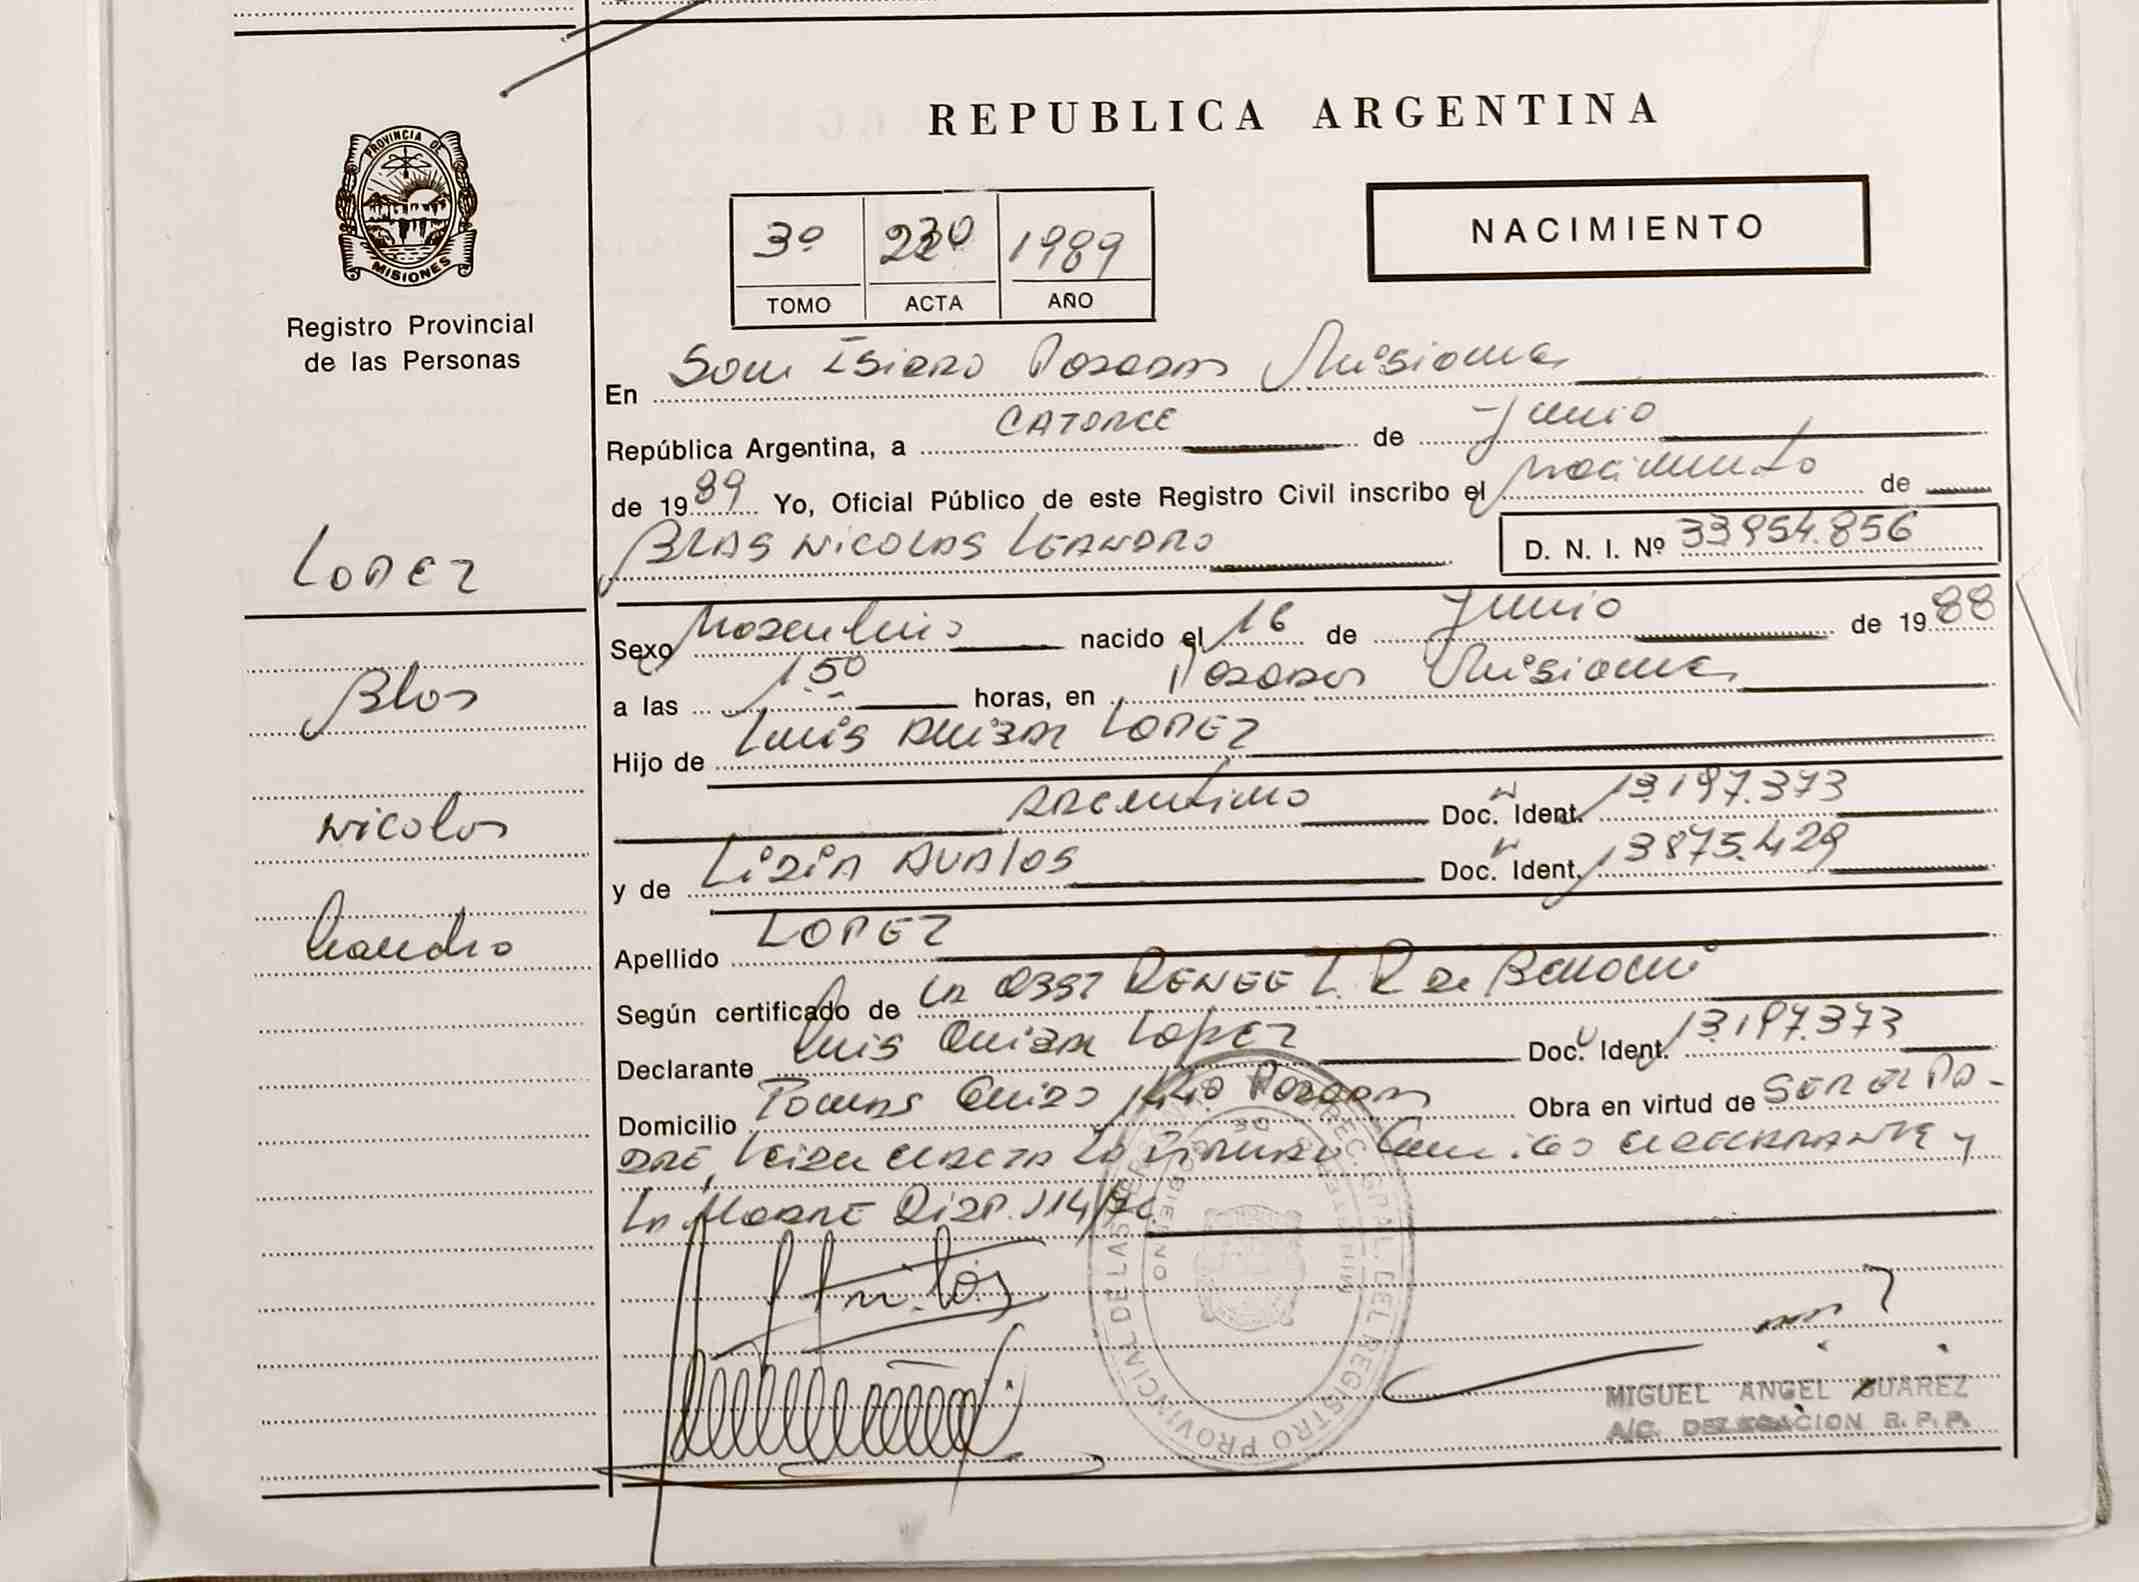 REPUBLICA ARGENTINA
PROVINCIA DE
MISIONES
Registro Provincial
de las Personas
3º 230 1989
TOMO ACTA AÑO
NACIMIENTO
En San Isidro Posadas Misiones
República Argentina, a CATORCE de Junio
de 1989 Yo, Oficial Público de este Registro Civil inscribo el nacimiento de
BLAS NICOLAS LEANDRO D. N. I. Nº 33954.856
LOPEZ
Blas
Nicolas
Leandro
Sexo Masculino nacido el 16 de Junio de 1988
a las 1.50 horas, en Posadas Misiones
Hijo de Luis ANIBAL LOPEZ
ARGENTINO Doc. Ident. 13.197.373
y de LIDIA AVALOS Doc. Ident. 13875.429
Apellido LOPEZ
Según certificado de La OBST RENEE L. R de
Declarante Luis ANIBAL LOPEZ Doc. Ident. 13.197.373
Domicilio Tomas Guido Posadas Obra en virtud de SER EL PA-
DRE, Leida el acta la firman conmigo el DECLARANTE y
LA MADRE DISP. 114/
DIREC. GRAL. DEL REGISTRO PROVINCIAL DE LAS
MINISTERIO DE GOBIERNO
MIGUEL ANGEL SUAREZ
A/C. DELEGACION R. P. P.